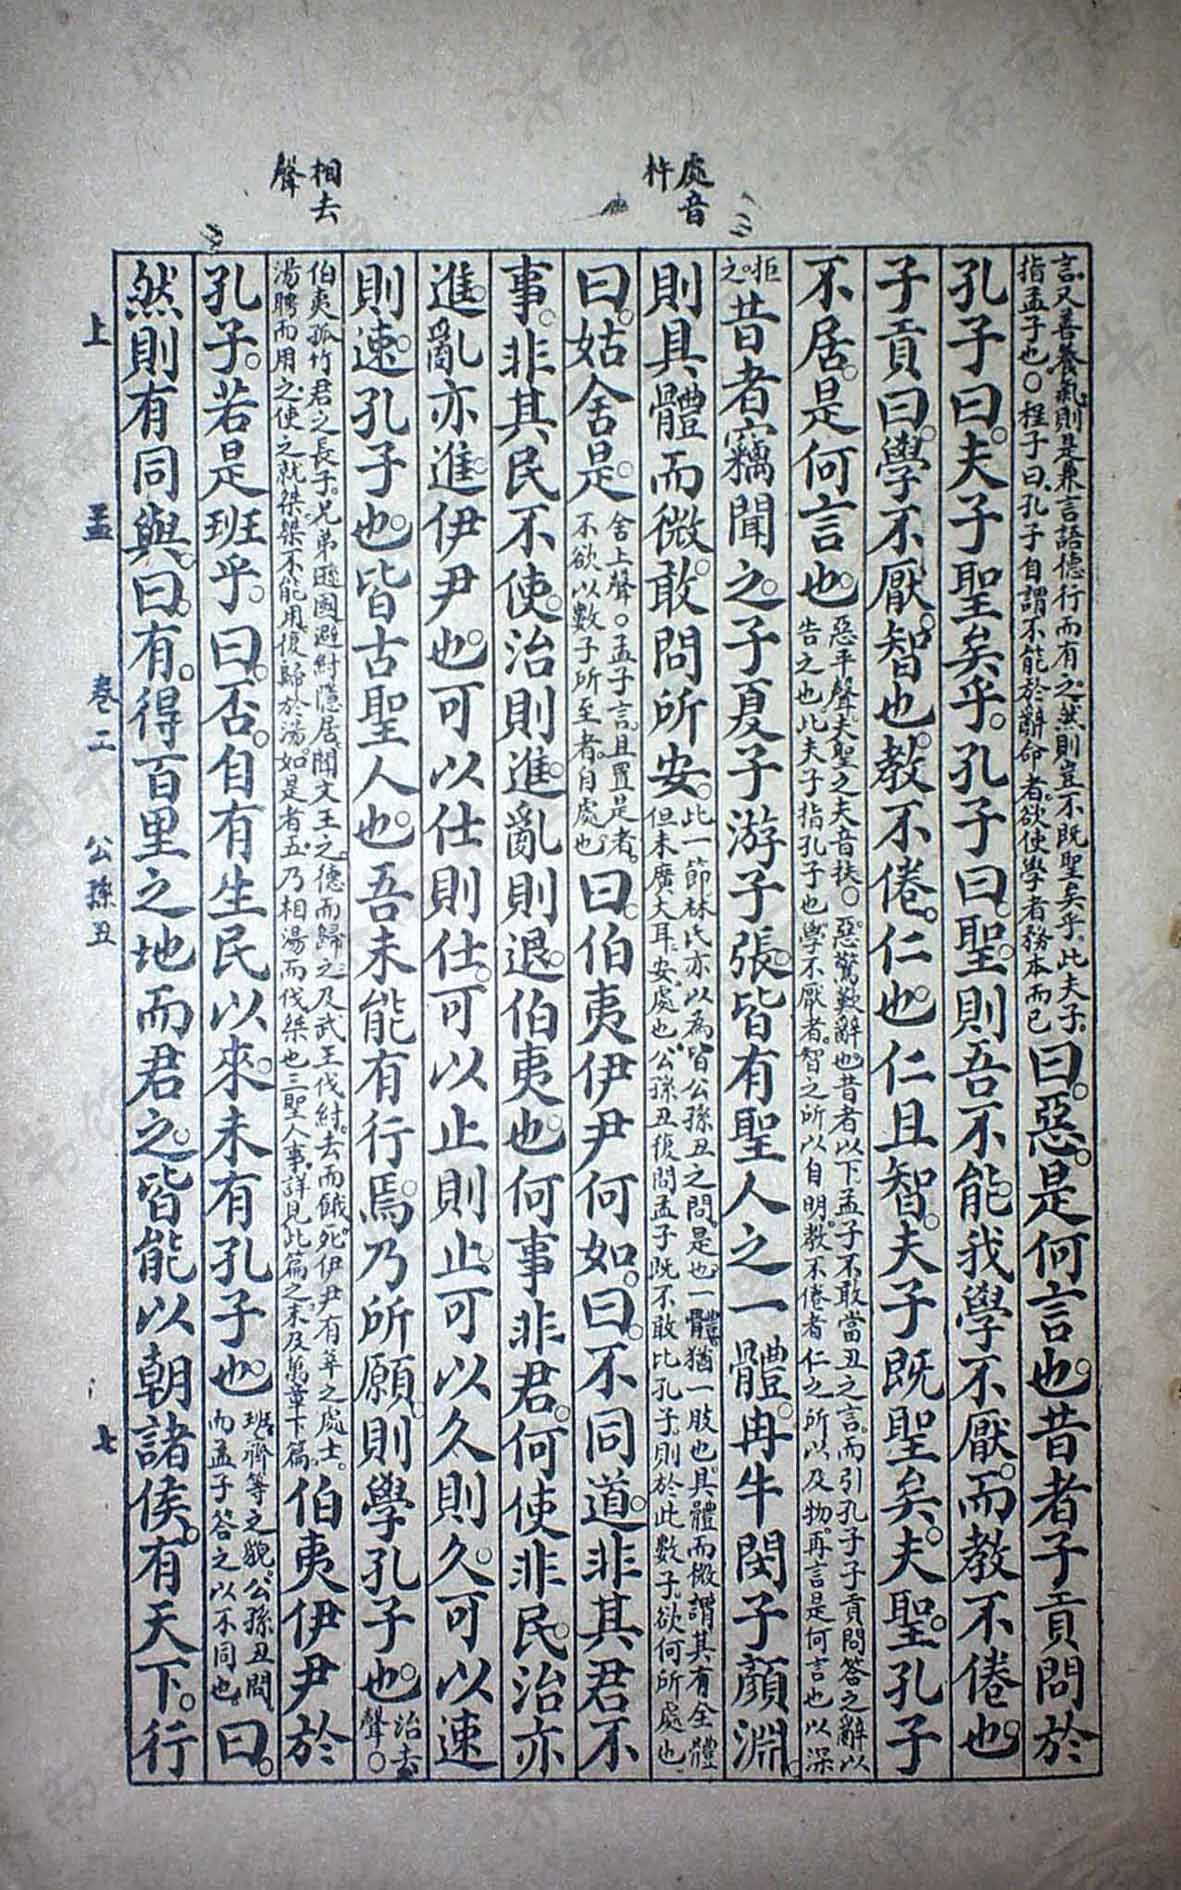 處音
杵
相去
聲
言又善養氣則是兼言語德行而有之然則豈不既聖矣乎此夫子
指孟子也○程子曰孔子自謂不能於辭命者欲使學者務本而已
曰惡是何言也昔者子貢問於
孔子曰夫子聖矣乎孔子曰聖則吾不能我學不厭而教不倦也
子貢曰學不厭智也教不倦仁也仁且智夫子既聖矣夫聖孔子
不居是何言也
惡平聲夫聖之夫音扶○惡驚歎辭也昔者以下孟子不敢當丑之言而引孔子子貢問答之辭以
告之也此夫子指孔子也學不厭者智之所以自明教不倦者仁之所以及物再言是何言也以深
拒
之
昔者竊聞之子夏子游子張皆有聖人之一體冉牛閔子顏淵
則具體而微敢問所安
此一節林氏亦以為皆公孫丑之問是也一體猶一肢也具體而微謂其有全體
但未廣大耳安處也公孫丑復問孟子既不敢比孔子則於此數子欲何所處也
曰姑舍是
舍上聲○孟子言且置是者
不欲以數子所至者自處也
曰伯夷伊尹何如曰不同道非其君不
事非其民不使治則進亂則退伯夷也何事非君何使非民治亦
進亂亦進伊尹也可以仕則仕可以止則止可以久則久可以速
則速孔子也皆古聖人也吾未能有行焉乃所願則學孔子也
治去
聲○
伯夷孤竹君之長子兄弟遜國避紂隱居聞文王之德而歸之及武王伐紂去而餓死伊尹有莘之處士
湯聘而用之使之就桀桀不能用復歸於湯如是者五乃相湯而伐桀也三聖人事詳見此篇之末及萬章下篇
伯夷伊尹於
孔子若是班乎曰否自有生民以來未有孔子也
班齊等之貌公孫丑問
而孟子答之以不同也
曰
然則有同與曰有得百里之地而君之皆能以朝諸侯有天下行
上 孟 卷二 公孫丑 七